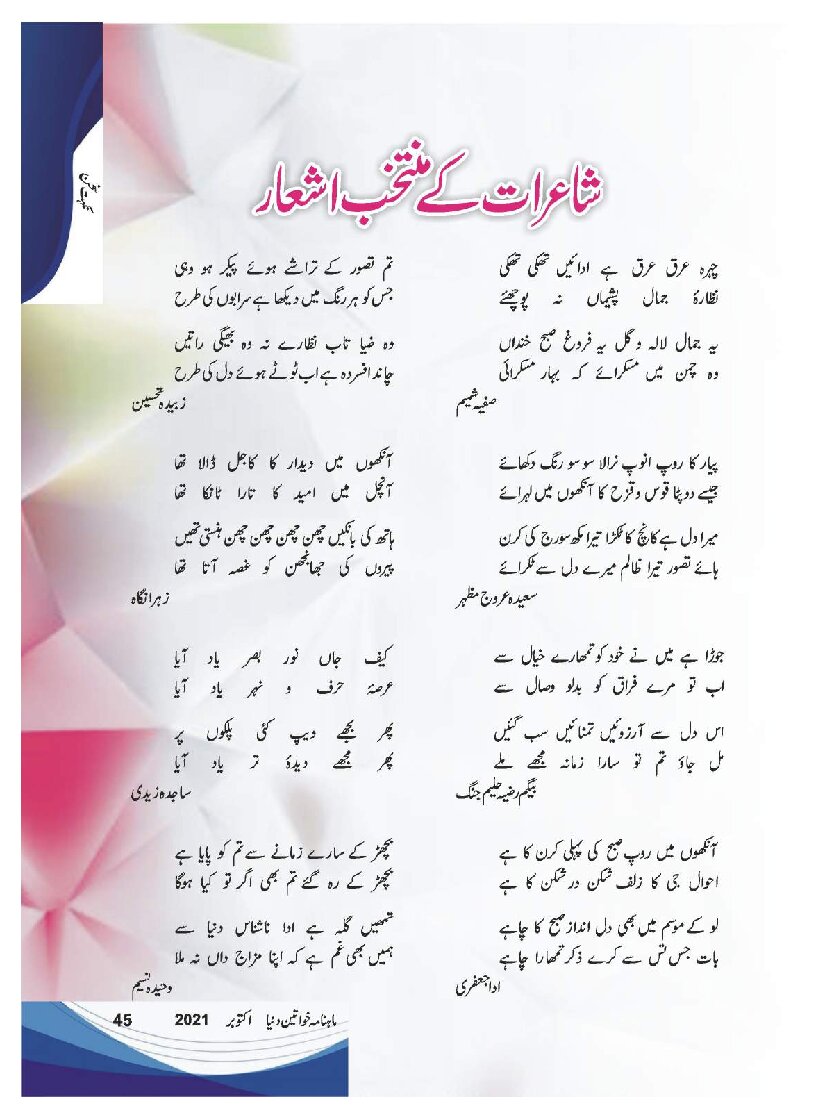 نکہتِ سخن
شاعرات کے منتخب اشعار
چہرہ عرق عرق ہے ادائیں تھکی تھکی
نظارۂ جمال پشیماں نہ پوچھئے
یہ جمال لالہ و گل یہ فروغ صبح خنداں
وہ چمن میں مسکرائے کہ بہار مسکرائی
صفیہ شمیم
پیار کا روپ انوپ نرالا سو سو رنگ دکھائے
جیسے دوپٹا قوس و قزح کا آنکھوں میں لہرائے
میرا دل ہے کانچ کا ٹکڑا تیرا مکھ سورج کی کرن
ہائے تصور تیرا ظالم میرے دل سے ٹکرائے
سعیدہ عروج مظہر
جوڑا ہے میں نے خود کو تمھارے خیال سے
اب تو مرے فراق کو بدلو وصال سے
اس دل سے آرزوئیں تمنائیں سب گئیں
مل جاؤ تم تو سارا زمانہ مجھے ملے
بیگم رضیہ حلیم جنگ
آنکھوں میں روپ صبح کی پہلی کرن کا ہے
احوال جی کا زلف شکن در شکن کا ہے
لو کے موسم میں بھی دل انداز صبح کا چاہے
بات جس تس سے کرے ذکر تمھارا چاہے
ادا جعفری
تم تصور کے تراشے ہوئے پیکر ہو وہی
جس کو ہر رنگ میں دیکھا ہے سرابوں کی طرح
وہ ضیا تاب نظارے نہ وہ بھیگی راتیں
چاند افسردہ ہے اب ٹوٹے ہوئے دل کی طرح
زبیدہ تحسین
آنکھوں میں دیدار کا کاجل ڈالا تھا
آنچل میں امید کا تارا ٹانکا تھا
ہاتھ کی بانکیں چھن چھن چھن چھن ہنستی تھیں
پیروں کی جھانجھن کو غصہ آتا تھا
زہرا نگاہ
کیف جاں نور بصر یاد آیا
عرصۂ حرف و نہر یاد آیا
پھر بجھے دیپ کئی پلکوں پر
پھر مجھے دیدۂ تر یاد آیا
ساجدہ زیدی
بچھڑ کے سارے زمانے سے تم کو پایا ہے
بچھڑ کے رہ گئے تم بھی اگر تو کیا ہوگا
تمھیں گلہ ہے ادا ناشناس دنیا سے
ہمیں بھی غم ہے کہ اپنا مزاج داں نہ ملا
وحیدہ نسیم
ماہنامہ خواتین دنیا اکتوبر 2021 45